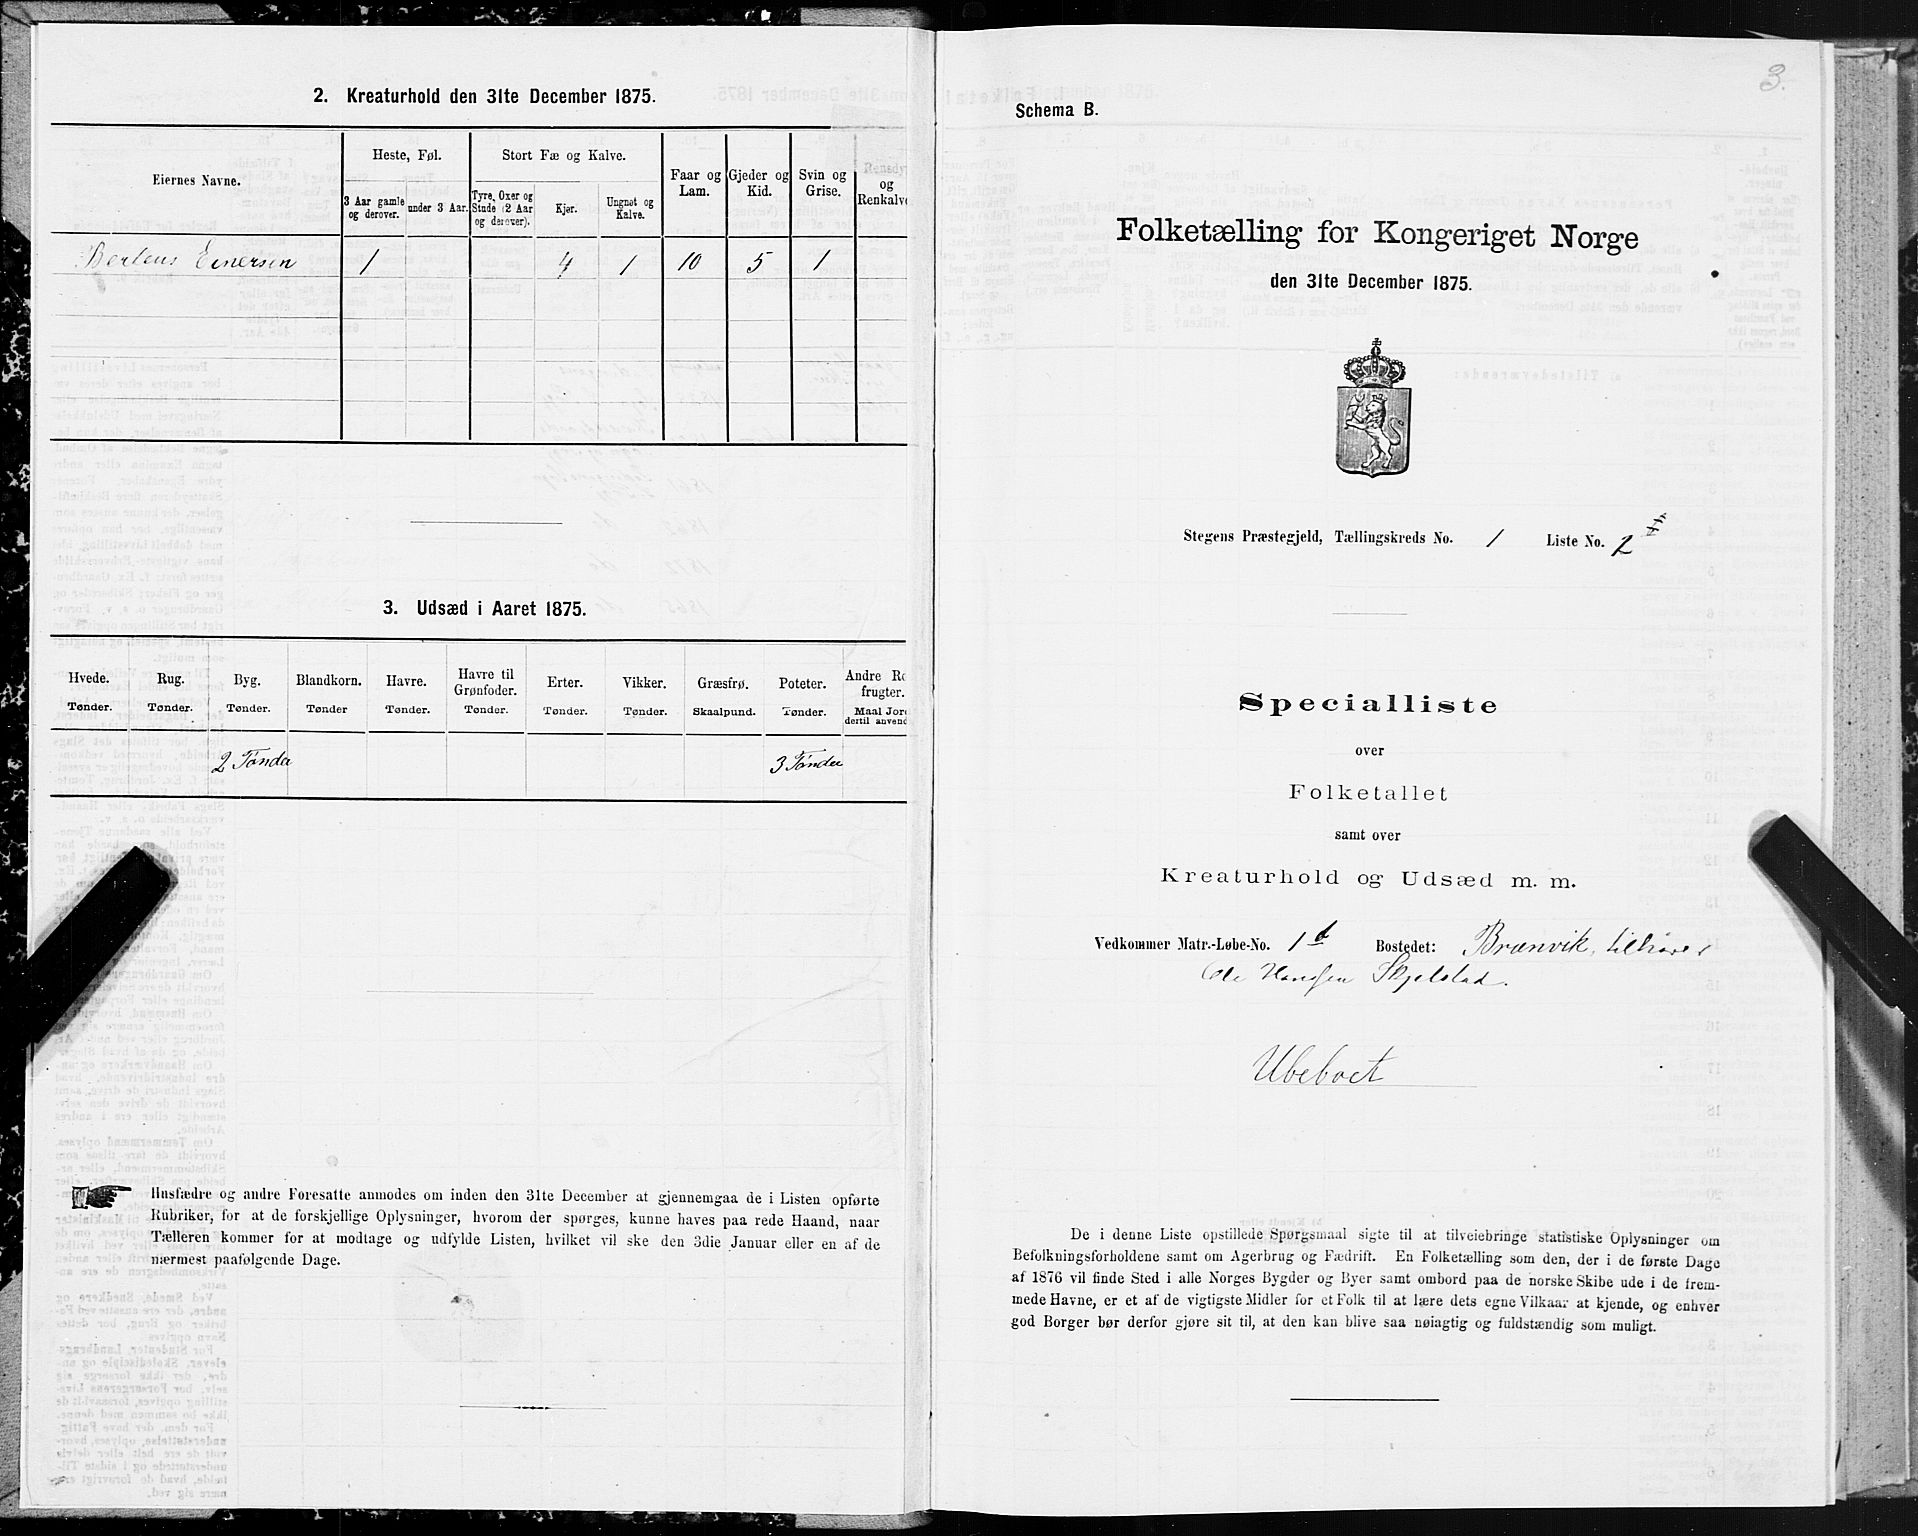 2. Kreaturhold den 31te December 1875.
Eiernes Navne.
Heste, Føl.
Stort Fæ og Kalve.
Faar og Lam.
Gjeder og Kid.
Svin og Grise.
Rensdyr og Renkalve
3 Aar gamle og derover.
under 3 Aar.
Tyre, Oxer og Stude (2 Aar og derover).
Kjør.
Ungnøt og Kalve.
Einersen 1 4 1 10 5 1
3. Udsæd i Aaret 1875.
Hvede. Rug. Byg. Blandkorn. Havre. Havre til Grønfoder. Erter. Vikker. Græsfrø. Poteter. Andre Ro frugter.
Tønder. Tønder. Tønder. Tønder Tønder. Tønder. Tønder. Tønder. Skaalpund. Tønder. Maal Jord dertil anvend
2 Tønder 3 Tønder
Husfædre og andre Foresatte anmodes om inden den 31te December at gjennemgaa de i Listen opførte
Rubriker, for at de forskjellige Oplysninger, hvorom der spørges, kunne haves paa rede Haand, naar
Tælleren kommer for at modtage og udfylde Listen, hvilket vil ske den 3die Januar eller en af de
nærmest paafølgende Dage.
3.
Schema B.
Folketælling for Kongeriget Norge
den 31te December 1875.
Stegens Præstegjeld, Tællingskreds No. 1 Liste No. 2
Specialliste
over
Folketallet
samt over
Kreaturhold og Udsæd m. m.
Vedkommer Matr.-Løbe-No. 1 Bostedet: Brænvik, tilhører
Ole Hansen Skjelstad.
Ubeboet
De i denne Liste opstillede Spørgsmaal sigte til at tilveiebringe statistiske Oplysninger om
Befolkningsforholdene samt om Agerbrug og Fædrift. En Folketælling som den, der i de første Dage
af 1876 vil finde Sted i alle Norges Bygder og Byer samt ombord paa de norske Skibe ude i de frem-
mede Havne, er et af de vigtigste Midler for et Folk til at lære dets egne Vilkaar at kjende, og enhver
god Borger bør derfor gjøre sit til, at den kan blive saa nøiagtig og fuldstændig som muligt.